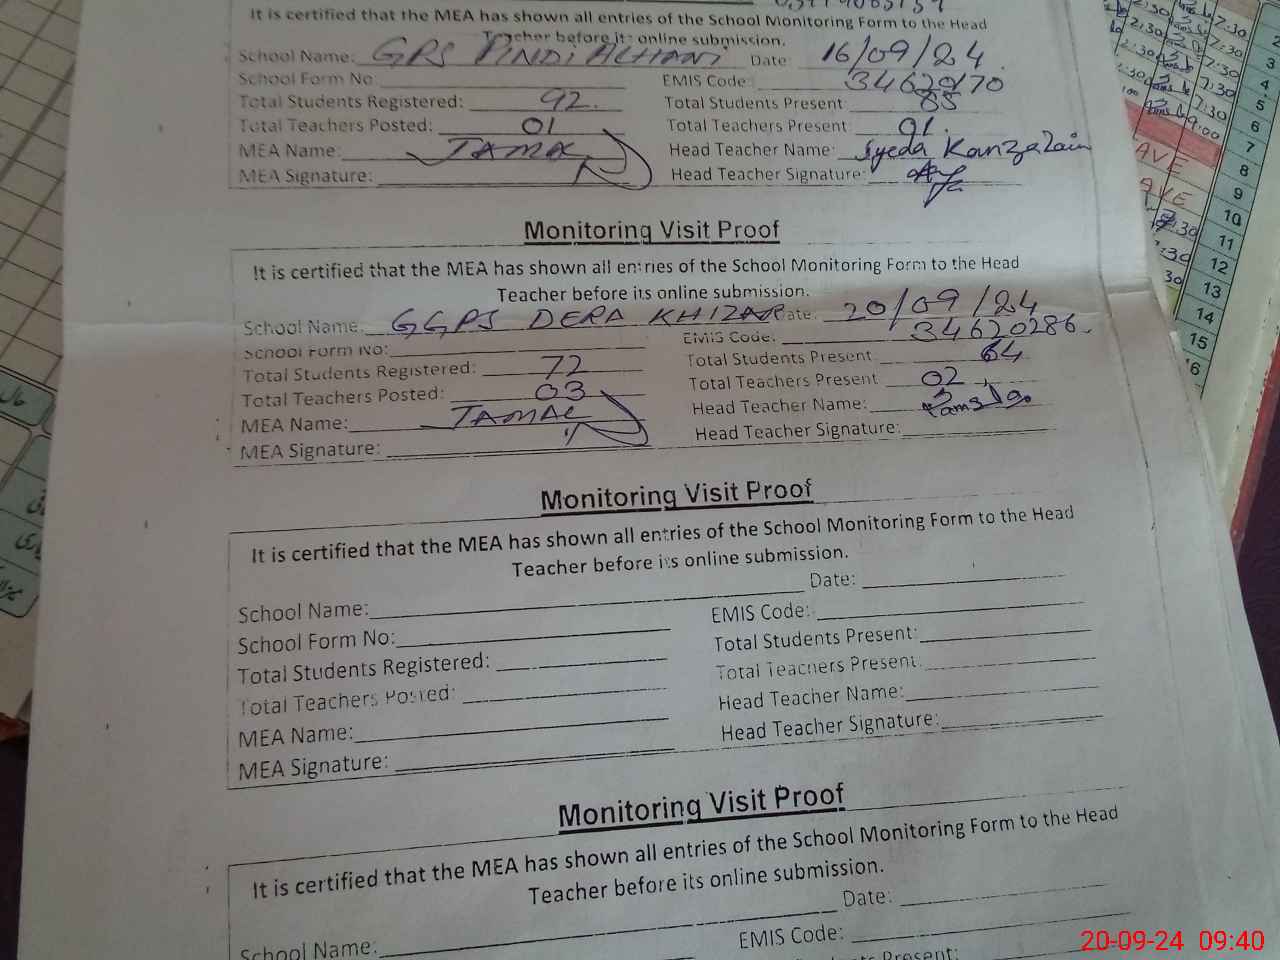 It is certified that the MEA has shown all entries of the School Monitoring Form to the Head
Teacher before its online submission.
School Name: GPS PINDI ALHANI Date: 16/09/24
School Form No: EMIS Code: 34620170
Total Students Registered: 92. Total Students Present 85
Total Teachers Posted: 01 Total Teachers Present: 01.
MEA Name: JAMAL Head Teacher Name: Syeda Kanza Zain
MEA Signature: Head Teacher Signature:
Monitoring Visit Proof
It is certified that the MEA has shown all entries of the School Monitoring Form to the Head
Teacher before its online submission.
School Name. GGPS DERA KHIZAR Date: 20/09/24
School Form No: EMIS Code: 34620286.
Total Students Registered: 72 Total Students Present: 64
Total Teachers Posted: 03 Total Teachers Present 02
MEA Name: JAMAL Head Teacher Name:
MEA Signature: Head Teacher Signature:
Monitoring Visit Proof
It is certified that the MEA has shown all entries of the School Monitoring Form to the Head
Teacher before its online submission.
School Name: Date:
School Form No: EMIS Code:
Total Students Registered: Total Students Present:
Total Teachers Posted: Total Teachers Present:
MEA Name: Head Teacher Name:
MEA Signature: Head Teacher Signature:
Monitoring Visit Proof
It is certified that the MEA has shown all entries of the School Monitoring Form to the Head
Teacher before its online submission.
School Name: Date:
EMIS Code:
Students Present:
3
4
5
6
7
8
9
10
11
12
13
14
15
16
20-09-24 09:40